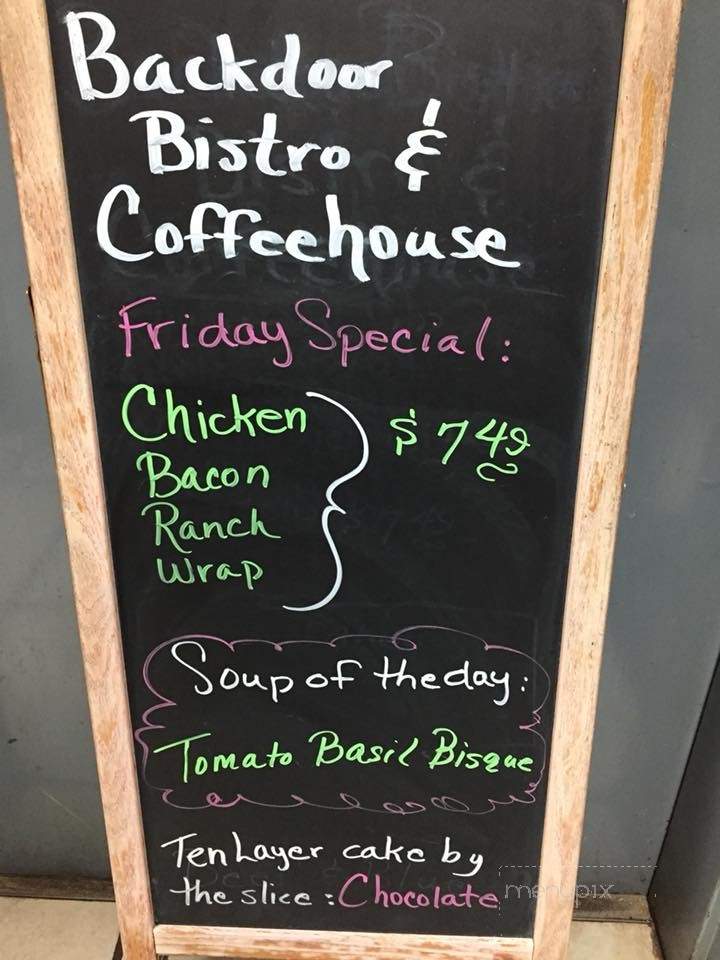 Backdoor
Bistro &
Coffeehouse
Friday Special:
Chicken $7.49
Bacon
Ranch
Wrap
Soup of the day:
Tomato Basil Bisque
Ten Layer cake by
the slice: Chocolate
menupix